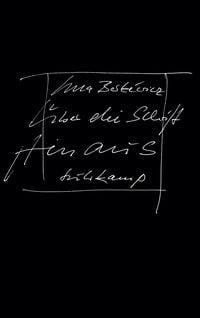 Uma Berkiewicz
Über die Schrift
Hinaus
suhrkamp